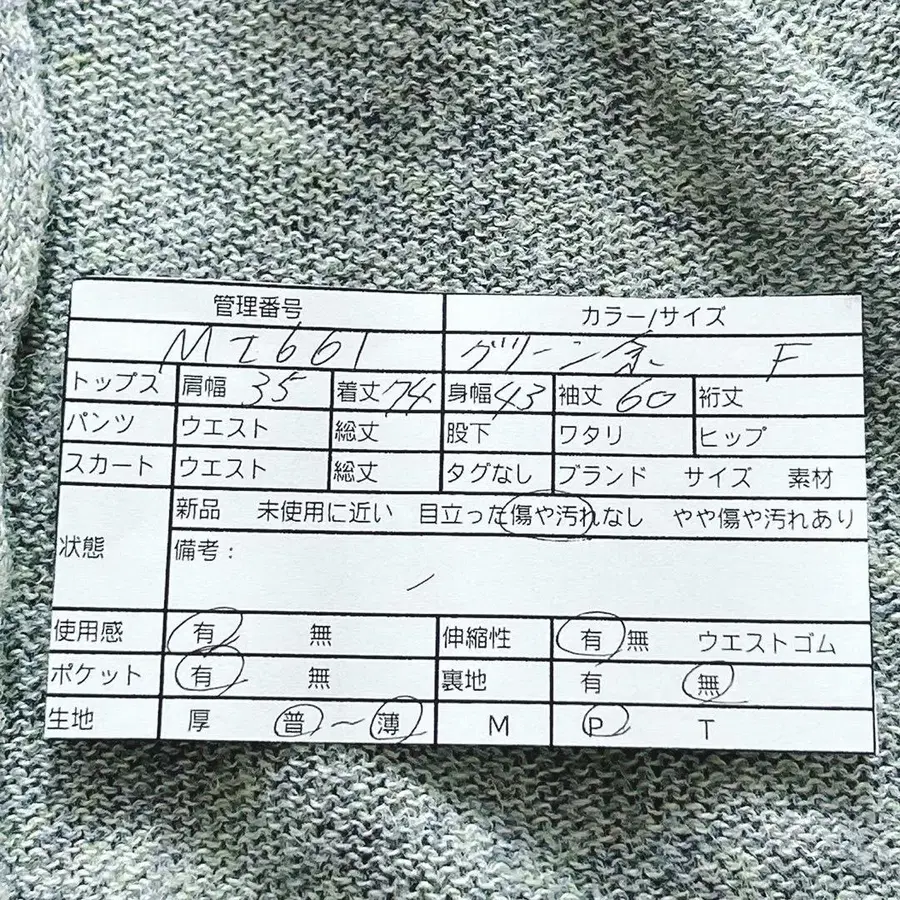 管理番号 カラー/サイズ
MI661 グリーン系 F
トップス 肩幅 35 着丈 74 身幅 43 袖丈 60 裄丈
パンツ ウエスト 総丈 股下 ワタリ ヒップ
スカート ウエスト 総丈 タグなし ブランド サイズ 素材
新品 未使用に近い 目立った傷や汚れなし やや傷や汚れあり
状態 備考:
使用感 有 無 伸縮性 有 無 ウエストゴム
ポケット 有 無 裏地 有 無
生地 厚 普 〜 薄 M P T